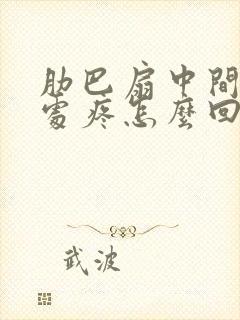 肋巴扇中間
處疼怎麼回
武波